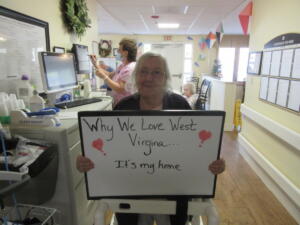 Why We Love West
Virginia...
It's my home